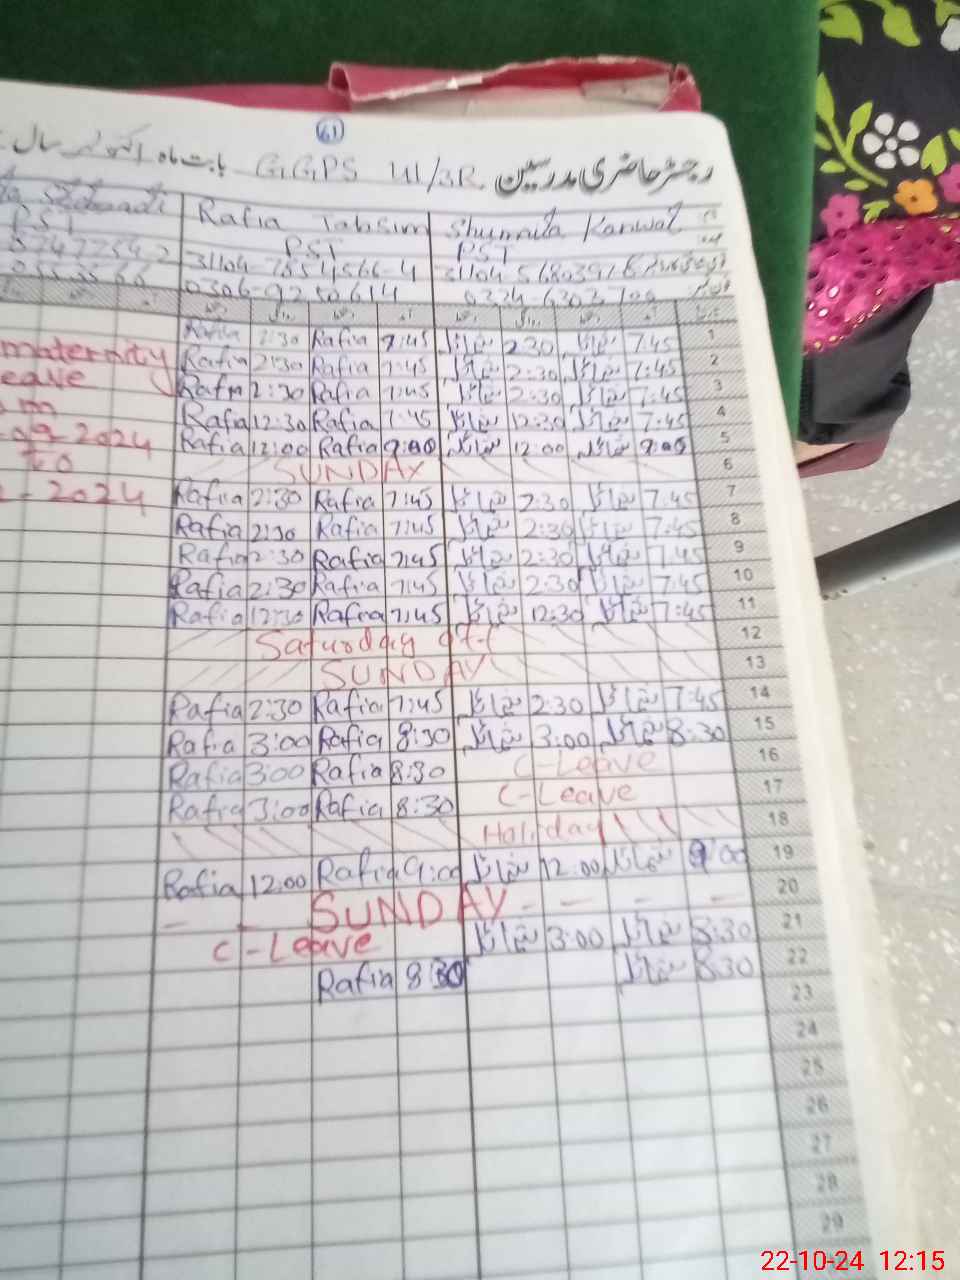 61
رجسٹر حاضری مدرسین GGPS 41/3R بابت ماہ اکتوبر سال
Rafia Tabsim Shumaila Kanwal
PST PST PST
0306-9250614
maternity
leave
2024
to
2024
Rafia 2:30 Rafia 7:45 شمائلہ 2:30 شمائلہ 7:45 1
Rafia 2:30 Rafia 7:45 شمائلہ 2:30 شمائلہ 7:45 2
Rafia 2:30 Rafia 7:45 شمائلہ 2:30 شمائلہ 7:45 3
Rafia 12:30 Rafia 7:45 شمائلہ 12:30 شمائلہ 7:45 4
Rafia 12:00 Rafia 9:00 شمائلہ 12:00 شمائلہ 9:00 5
SUNDAY 6
Rafia 2:30 Rafia 7:45 شمائلہ 2:30 شمائلہ 7:45 7
Rafia 2:30 Rafia 7:45 شمائلہ 2:30 شمائلہ 7:45 8
Rafia 2:30 Rafia 7:45 شمائلہ 2:30 شمائلہ 7:45 9
Rafia 2:30 Rafia 7:45 شمائلہ 2:30 شمائلہ 7:45 10
Rafia 12:30 Rafia 7:45 شمائلہ 12:30 شمائلہ 7:45 11
Saturday off 12
SUNDAY 13
Rafia 2:30 Rafia 7:45 شمائلہ 2:30 شمائلہ 7:45 14
Rafia 3:00 Rafia 8:30 شمائلہ 3:00 شمائلہ 8:30 15
Rafia 3:00 Rafia 8:30 C-Leave 16
Rafia 3:00 Rafia 8:30 C-Leave 17
Holiday 18
Rafia 12:00 Rafia 9:00 شمائلہ 12:00 شمائلہ 9:00 19
SUNDAY 20
C-Leave شمائلہ 3:00 شمائلہ 8:30 21
Rafia 8:30 شمائلہ 8:30 22
23
24
25
26
27
28
29
22-10-24 12:15